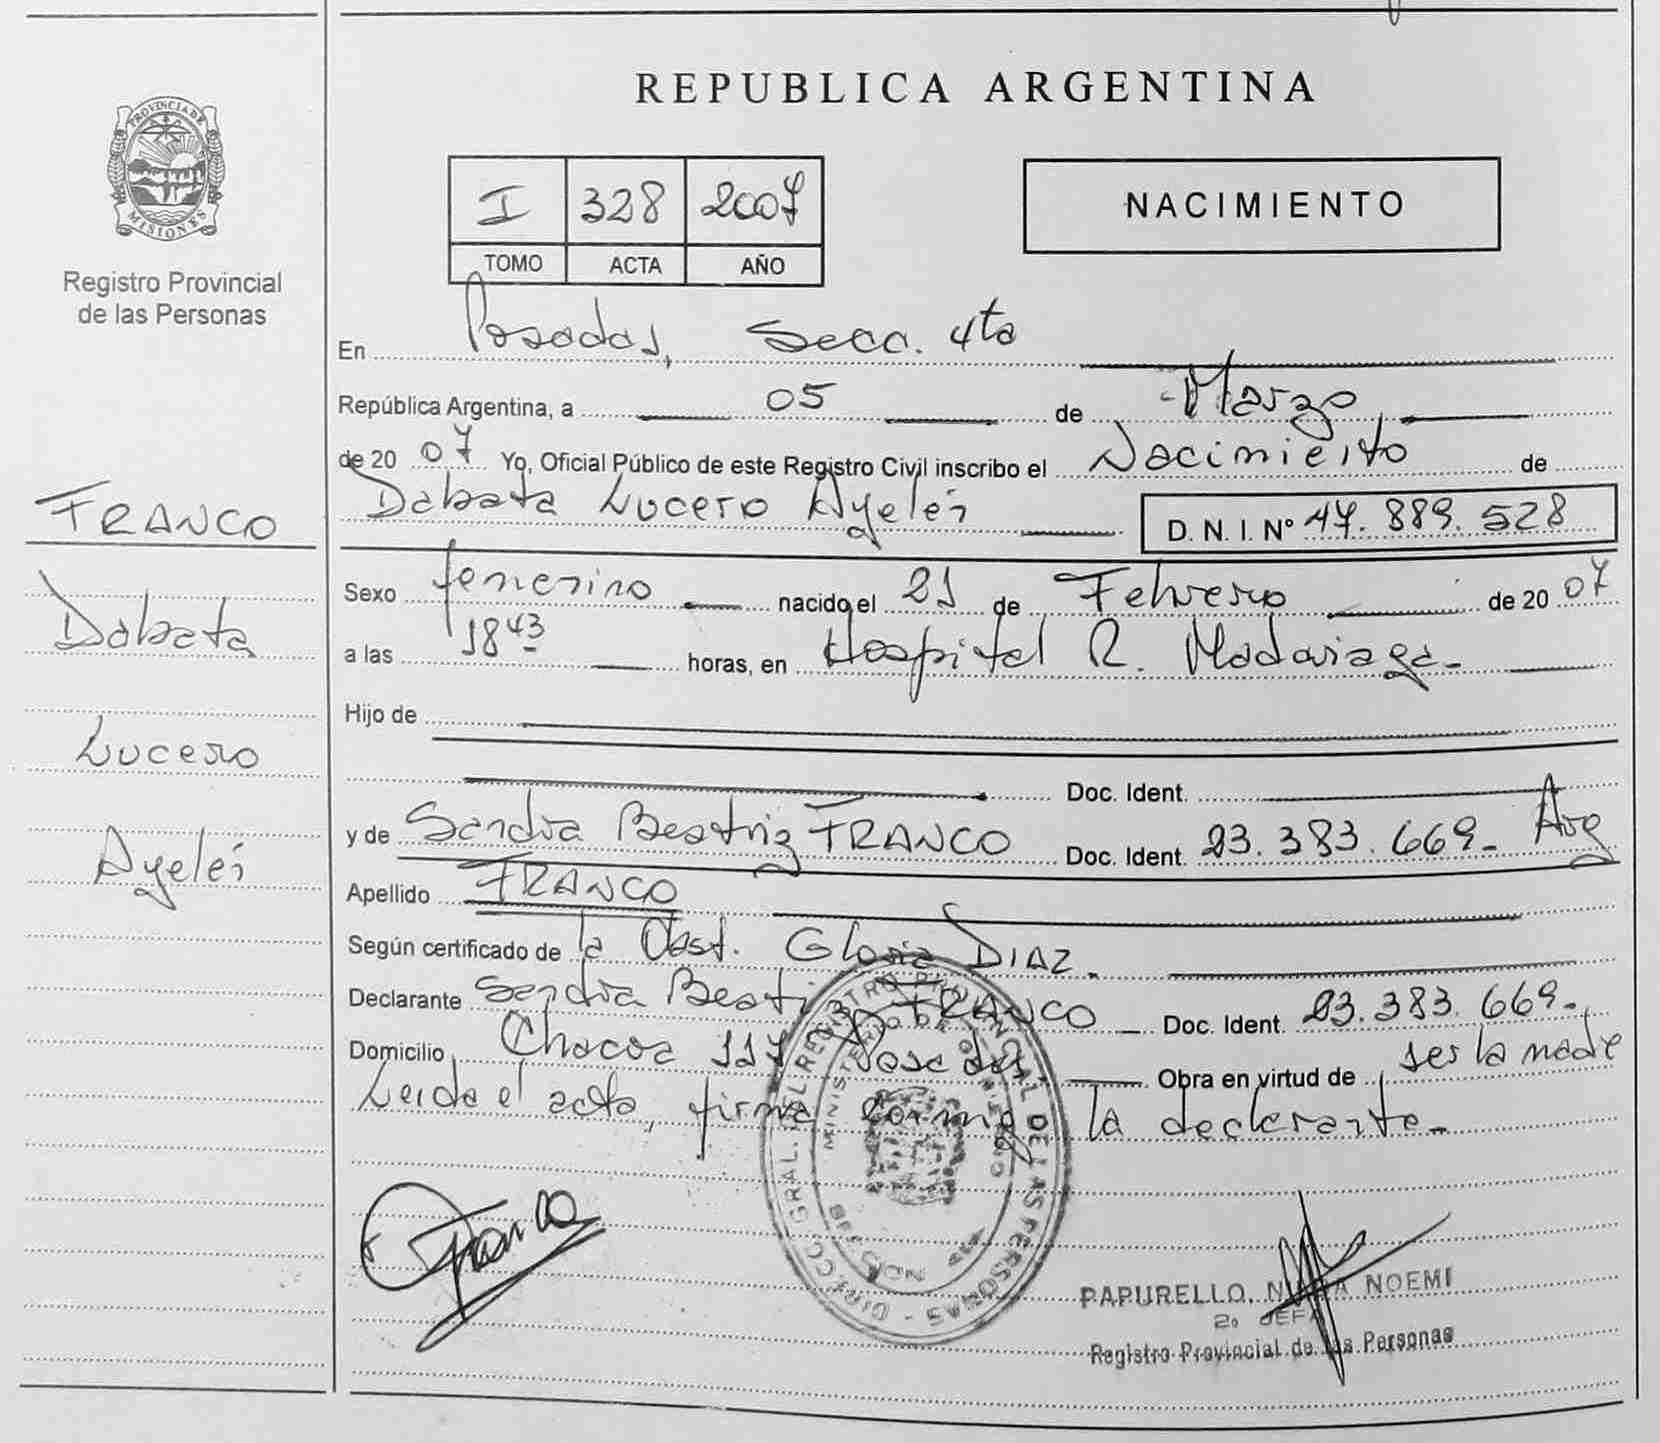 PROVINCIA DE
MISIONES
Registro Provincial
de las Personas
FRANCO
Dabata
Lucero
Ayelén
REPUBLICA ARGENTINA
I 328 2007
TOMO ACTA AÑO
NACIMIENTO
En Posadas, Secc. 4ta
República Argentina, a 05 de Marzo
de 20 07 Yo, Oficial Público de este Registro Civil inscribo el Nacimiento de
Dabata Lucero Ayelén D. N. I. Nº 47.889.528
Sexo femenino nacido el 21 de Febrero de 20 07
a las 18 43 horas, en Hospital R. Madariaga.-
Hijo de
Doc. Ident.
y de Sandra Beatriz FRANCO Doc. Ident. 23.383.669.- Arg
Apellido FRANCO
Según certificado de la Obst. Gloria DIAZ.
Declarante Sandra Beatriz FRANCO Doc. Ident. 23.383.669.-
Domicilio Chacra 117 Posadas Obra en virtud de ser la madre
Leida el acta, firma conmigo la declarante.-
Franco
DIRECC. GRAL. DEL REGISTRO PROVINCIAL DE LAS PERSONAS -
MINISTERIO DE GOBIERNO
PAPURELLO, NOEMI
2º JEFA
Registro Provincial de las Personas